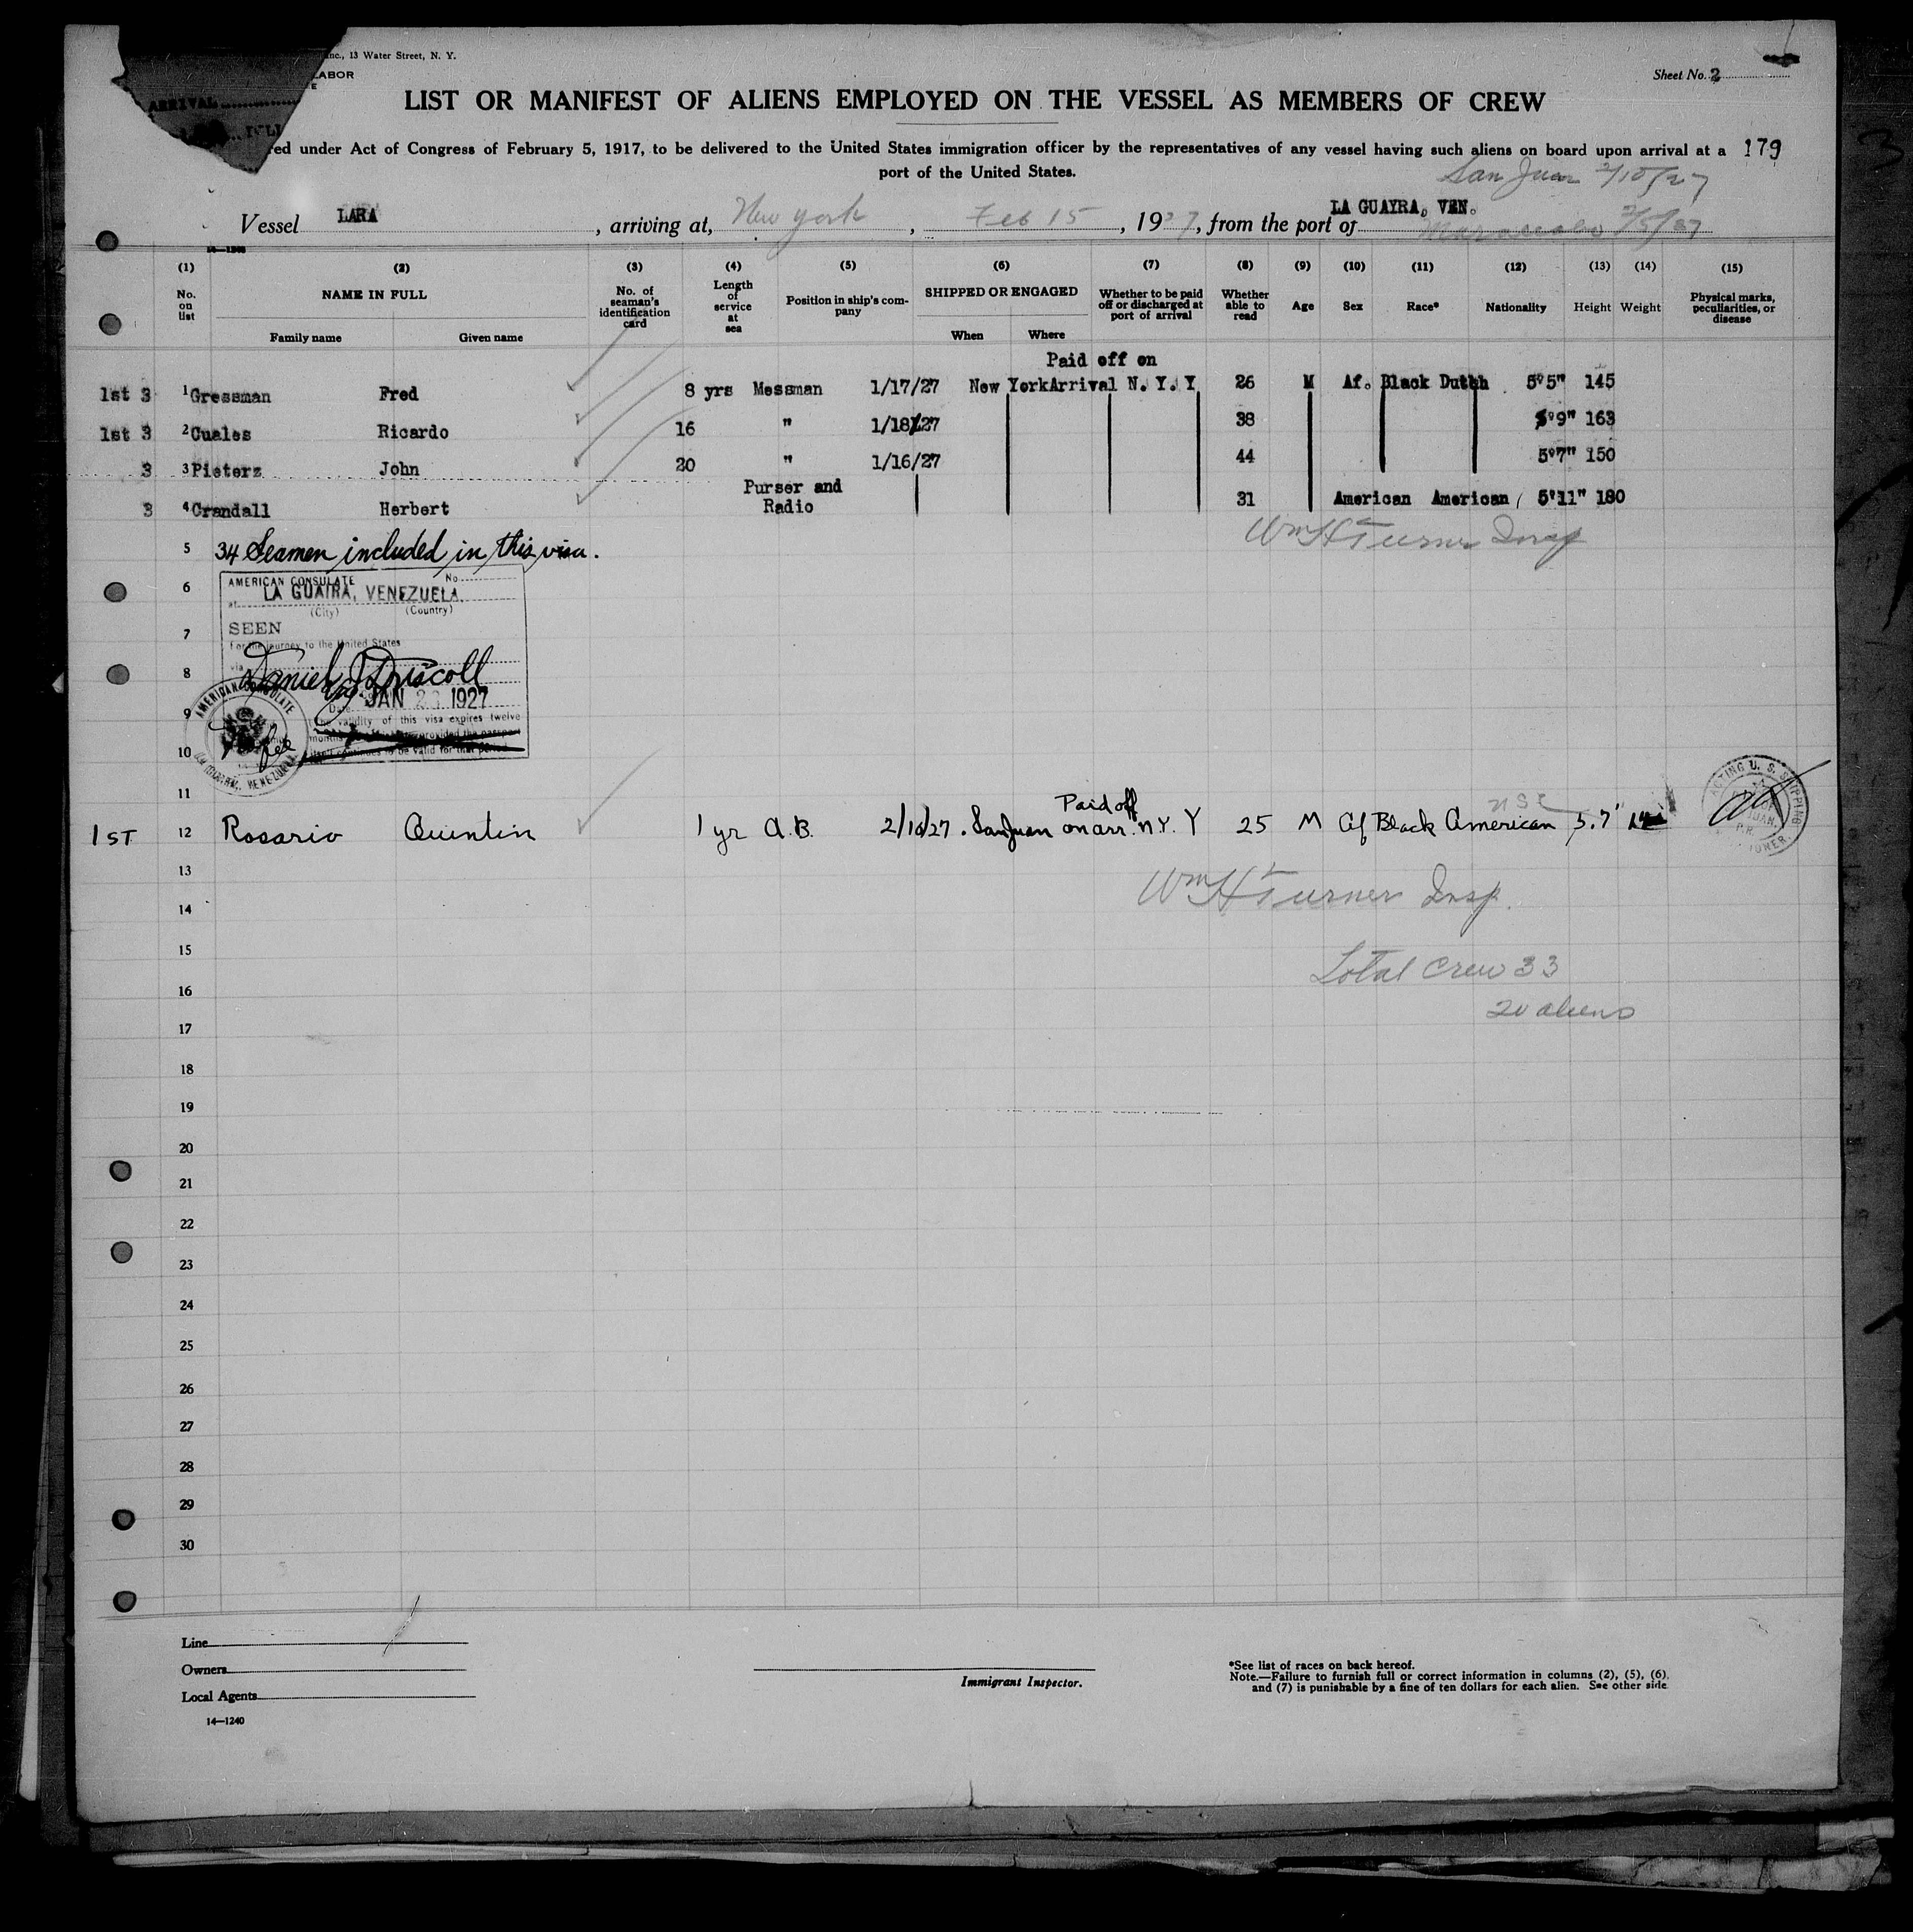 Inc., 13 Water Street, N. Y.
LABOR
ARRIVAL
Sheet No. 2
LIST OR MANIFEST OF ALIENS EMPLOYED ON THE VESSEL AS MEMBERS OF CREW
red under Act of Congress of February 5, 1917, to be delivered to the United States immigration officer by the representatives of any vessel having such aliens on board upon arrival at a 179
port of the United States.
San Juan 2/10/27
Vessel LARA, arriving at, New York, Feb 15, 1927, from the port of LA GUAYRA, VEN.
Maracaibo 2/5/27
(1) (2) (3) (4) (5) (6) (7) (8) (9) (10) (11) (12) (13) (14) (15)
No. on list
NAME IN FULL
Family name Given name
No. of seaman's identification card
Length of service at sea
Position in ship's company
SHIPPED OR ENGAGED
When Where
Whether to be paid off or discharged at port of arrival
Whether able to read
Age Sex Race* Nationality Height Weight
Physical marks, peculiarities, or disease
Paid off on
1st 3 1 Gressman Fred 8 yrs Messman 1/17/27 New York Arrival N. Y. Y 26 M Af. Black Dutch 5'5" 145
1st 3 2 Cuales Ricardo 16 " 1/18/27 38 5'9" 163
3 3 Pieterz John 20 " 1/16/27 44 5'7" 150
3 4 Crandall Herbert Purser and Radio 31 American American 5'11" 180
Wm H Turner Insp
5 34 Seamen included in this visa.
6 AMERICAN CONSULATE No.
at LA GUAIRA, VENEZUELA.
(City) (Country)
7 SEEN
For the journey to the United States
via
8 Daniel J. Driscoll
Date JAN 1927
9 (The validity of this visa expires twelve
months provided the passport
10 itself continues to be valid for that period
AMERICAN CONSULATE
No fee
11
Paid off
1ST 12 Rosario Quintin 1 yr A.B. 2/10/27. San Juan on arr. N.Y. Y 25 M Af Black American 5.7"
USC
ACTING U. S. SHIPPING
13
Wm H Turner Insp.
14
15
Total crew 33
16
20 aliens
17
18
19
20
21
22
23
24
25
26
27
28
29
30
Line
Owners
Local Agents
14—1240
Immigrant Inspector.
*See list of races on back hereof.
Note.—Failure to furnish full or correct information in columns (2), (5), (6),
and (7) is punishable by a fine of ten dollars for each alien. See other side.